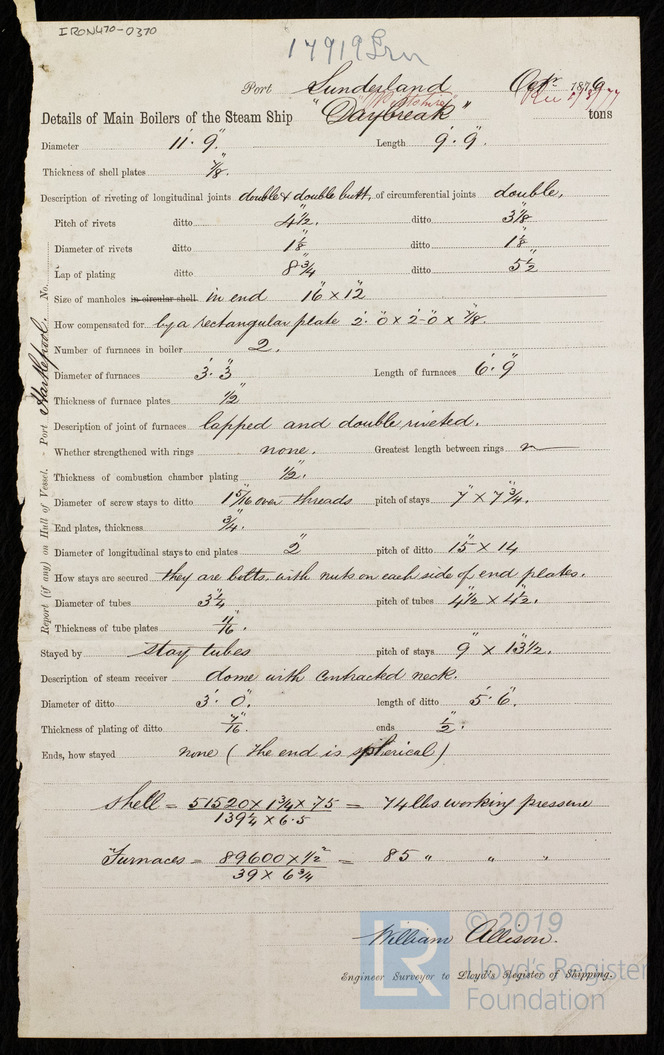 IRON470-0370
17919 Irn
Port Sunderland Octr 1876
Details of Main Boilers of the Steam Ship "Daybreak" tons
Diameter 11'. 9" Length 9'. 9".
Thickness of shell plates 7/8".
Description of riveting of longitudinal joints double & double butt, of circumferential joints double,
Pitch of rivets ditto 4 1/2". ditto 3 1/8"
Diameter of rivets ditto 1 1/8" ditto 1 1/8"
Lap of plating ditto 8 3/4" ditto 5 1/2"
Size of manholes in circular shell in end 16" x 12"
How compensated for by a rectangular plate 2'. 0" x 2'-0" x 7/8".
Number of furnaces in boiler 2.
Diameter of furnaces 3'. 3" Length of furnaces 6'. 9"
Thickness of furnace plates 1/2"
Description of joint of furnaces lapped and double riveted.
Whether strengthened with rings none. Greatest length between rings
Thickness of combustion chamber plating 1/2".
Diameter of screw stays to ditto 1 5/16" over threads pitch of stays 7" x 7 3/4".
End plates, thickness 3/4".
Diameter of longitudinal stays to end plates 2" pitch of ditto 15" x 14
How stays are secured they are bolts, with nuts on each side of end plates.
Diameter of tubes 3 1/4" pitch of tubes 4 1/2" x 4 1/2".
Thickness of tube plates 11/16".
Stayed by stay tubes pitch of stays 9" x 13 1/2".
Description of steam receiver dome with contracted neck.
Diameter of ditto 3'. 0". length of ditto 5'. 6".
Thickness of plating of ditto 7/16" ends 1/2".
Ends, how stayed none (the end is spherical)
Shell = 51520 x 1 3/4 x 75 / 139 1/4 x 6.5 = 74 lbs working pressure
Furnaces = 89600 x 1/2² / 39 x 6 3/4 = 85 " " "
William Allison.
Engineer Surveyor to Lloyd's Register of Shipping.
Report (if any) on Hull of Vessel. - Port Hartlepool. No.
LR
© 2019
Lloyd's Register
Foundation